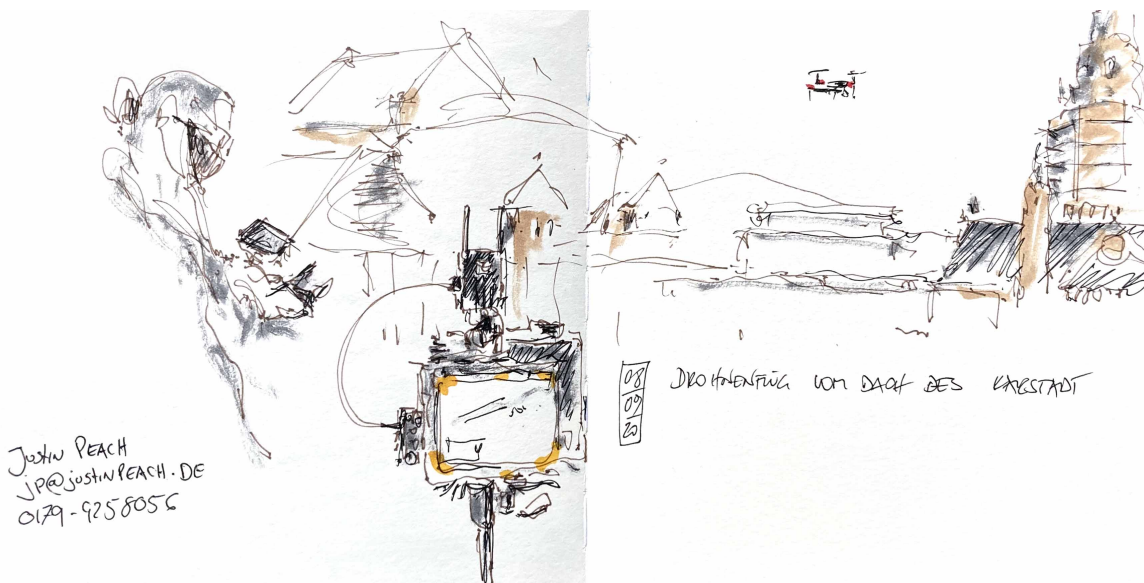 Justin Peach
jp@justinPeach.de
0179-9258056
08
09
20
DROHNENFLUG VOM DACH DES KARSTADT